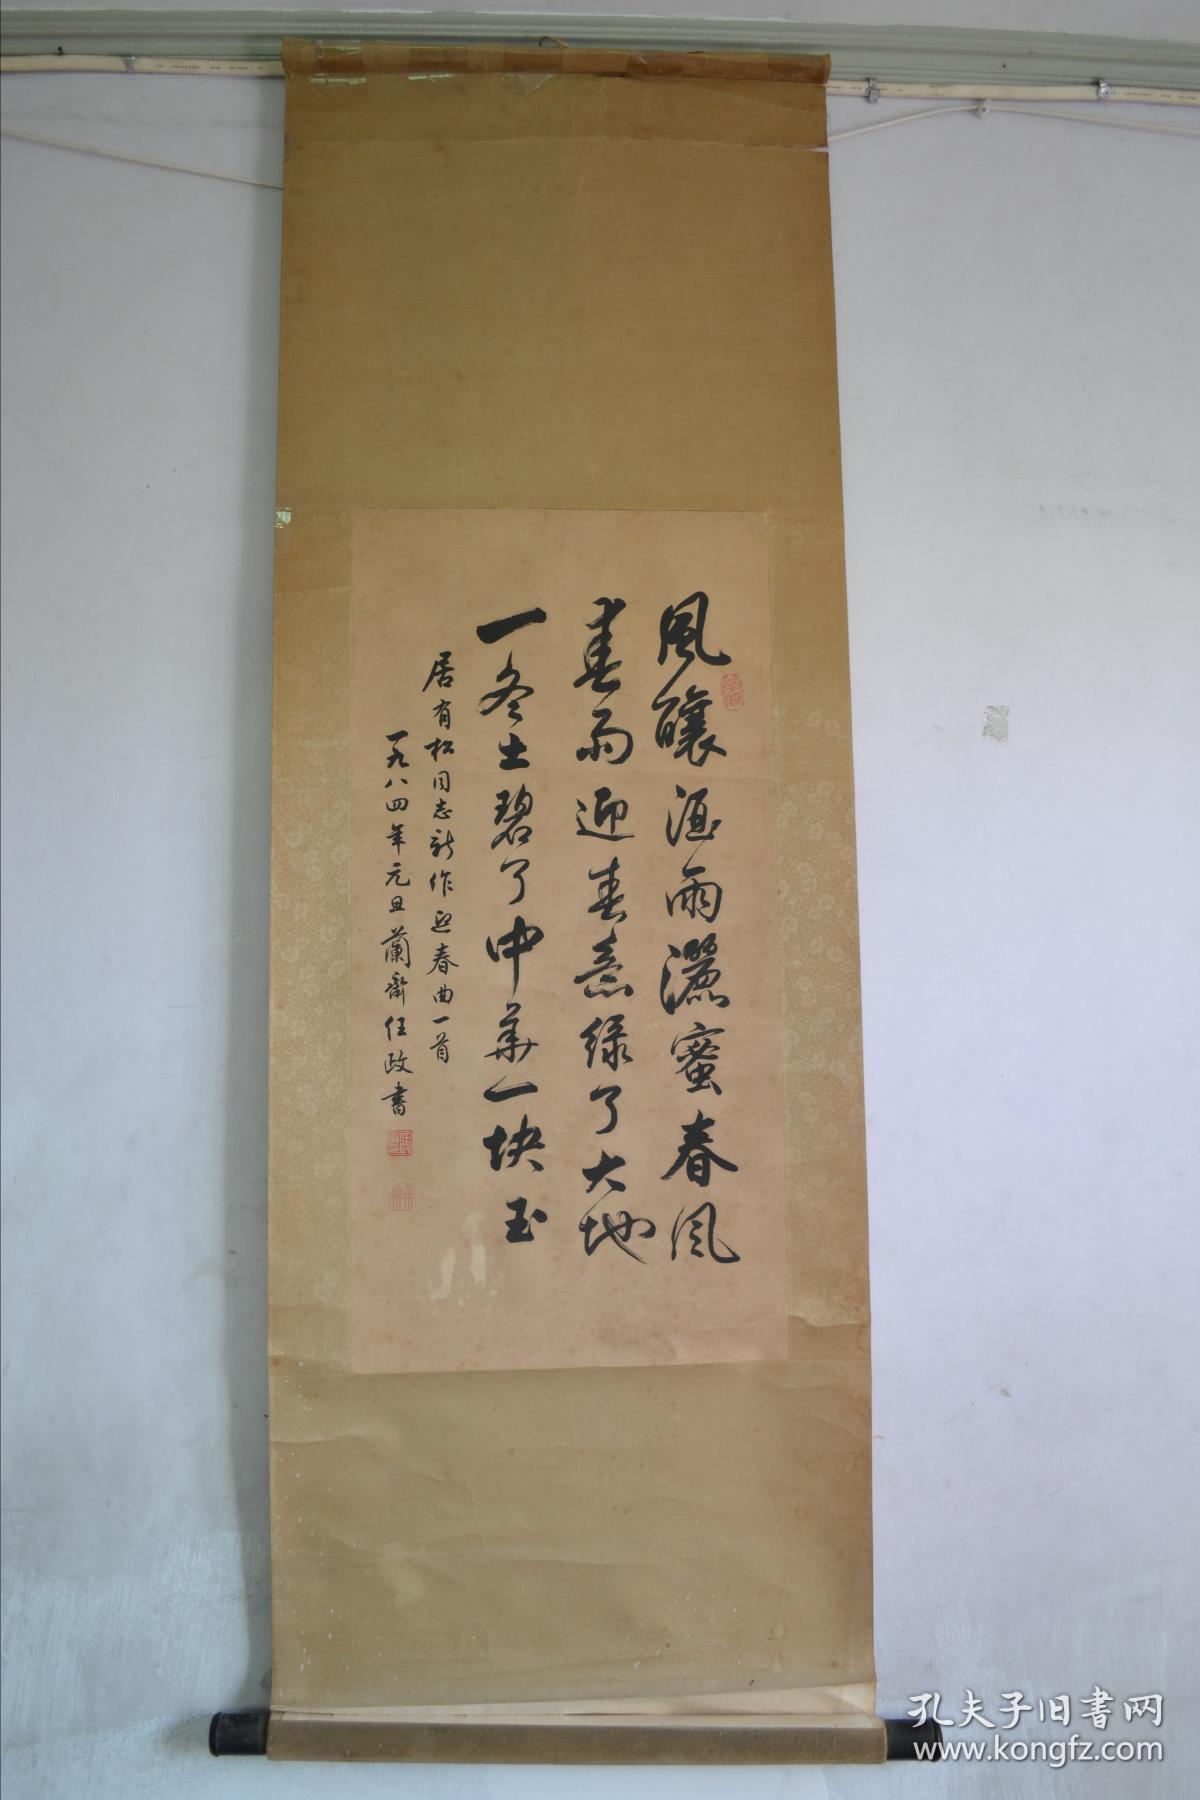 風釀酒雨灑蜜春風
春雨迎春意綠了大地
一冬土碧了中華一块玉
居有松同志新作迎春曲一首
一九八四年元旦蘭齋任政書
孔夫子旧书网
www.kongfz.com